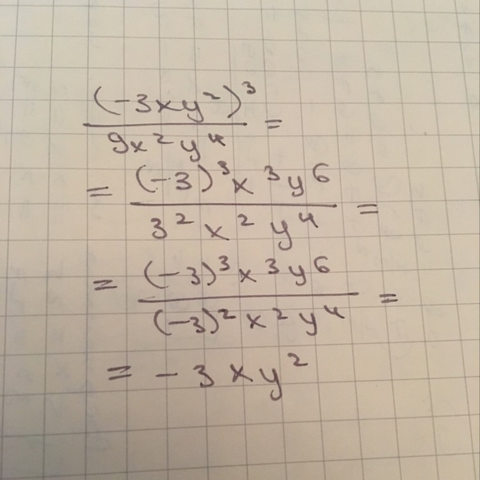 (-3xy²)³
9x²y⁴ =
= (-3)³x³y⁶
3²x²y⁴ =
= (-3)³x³y⁶
(-3)²x²y⁴ =
= -3xy²